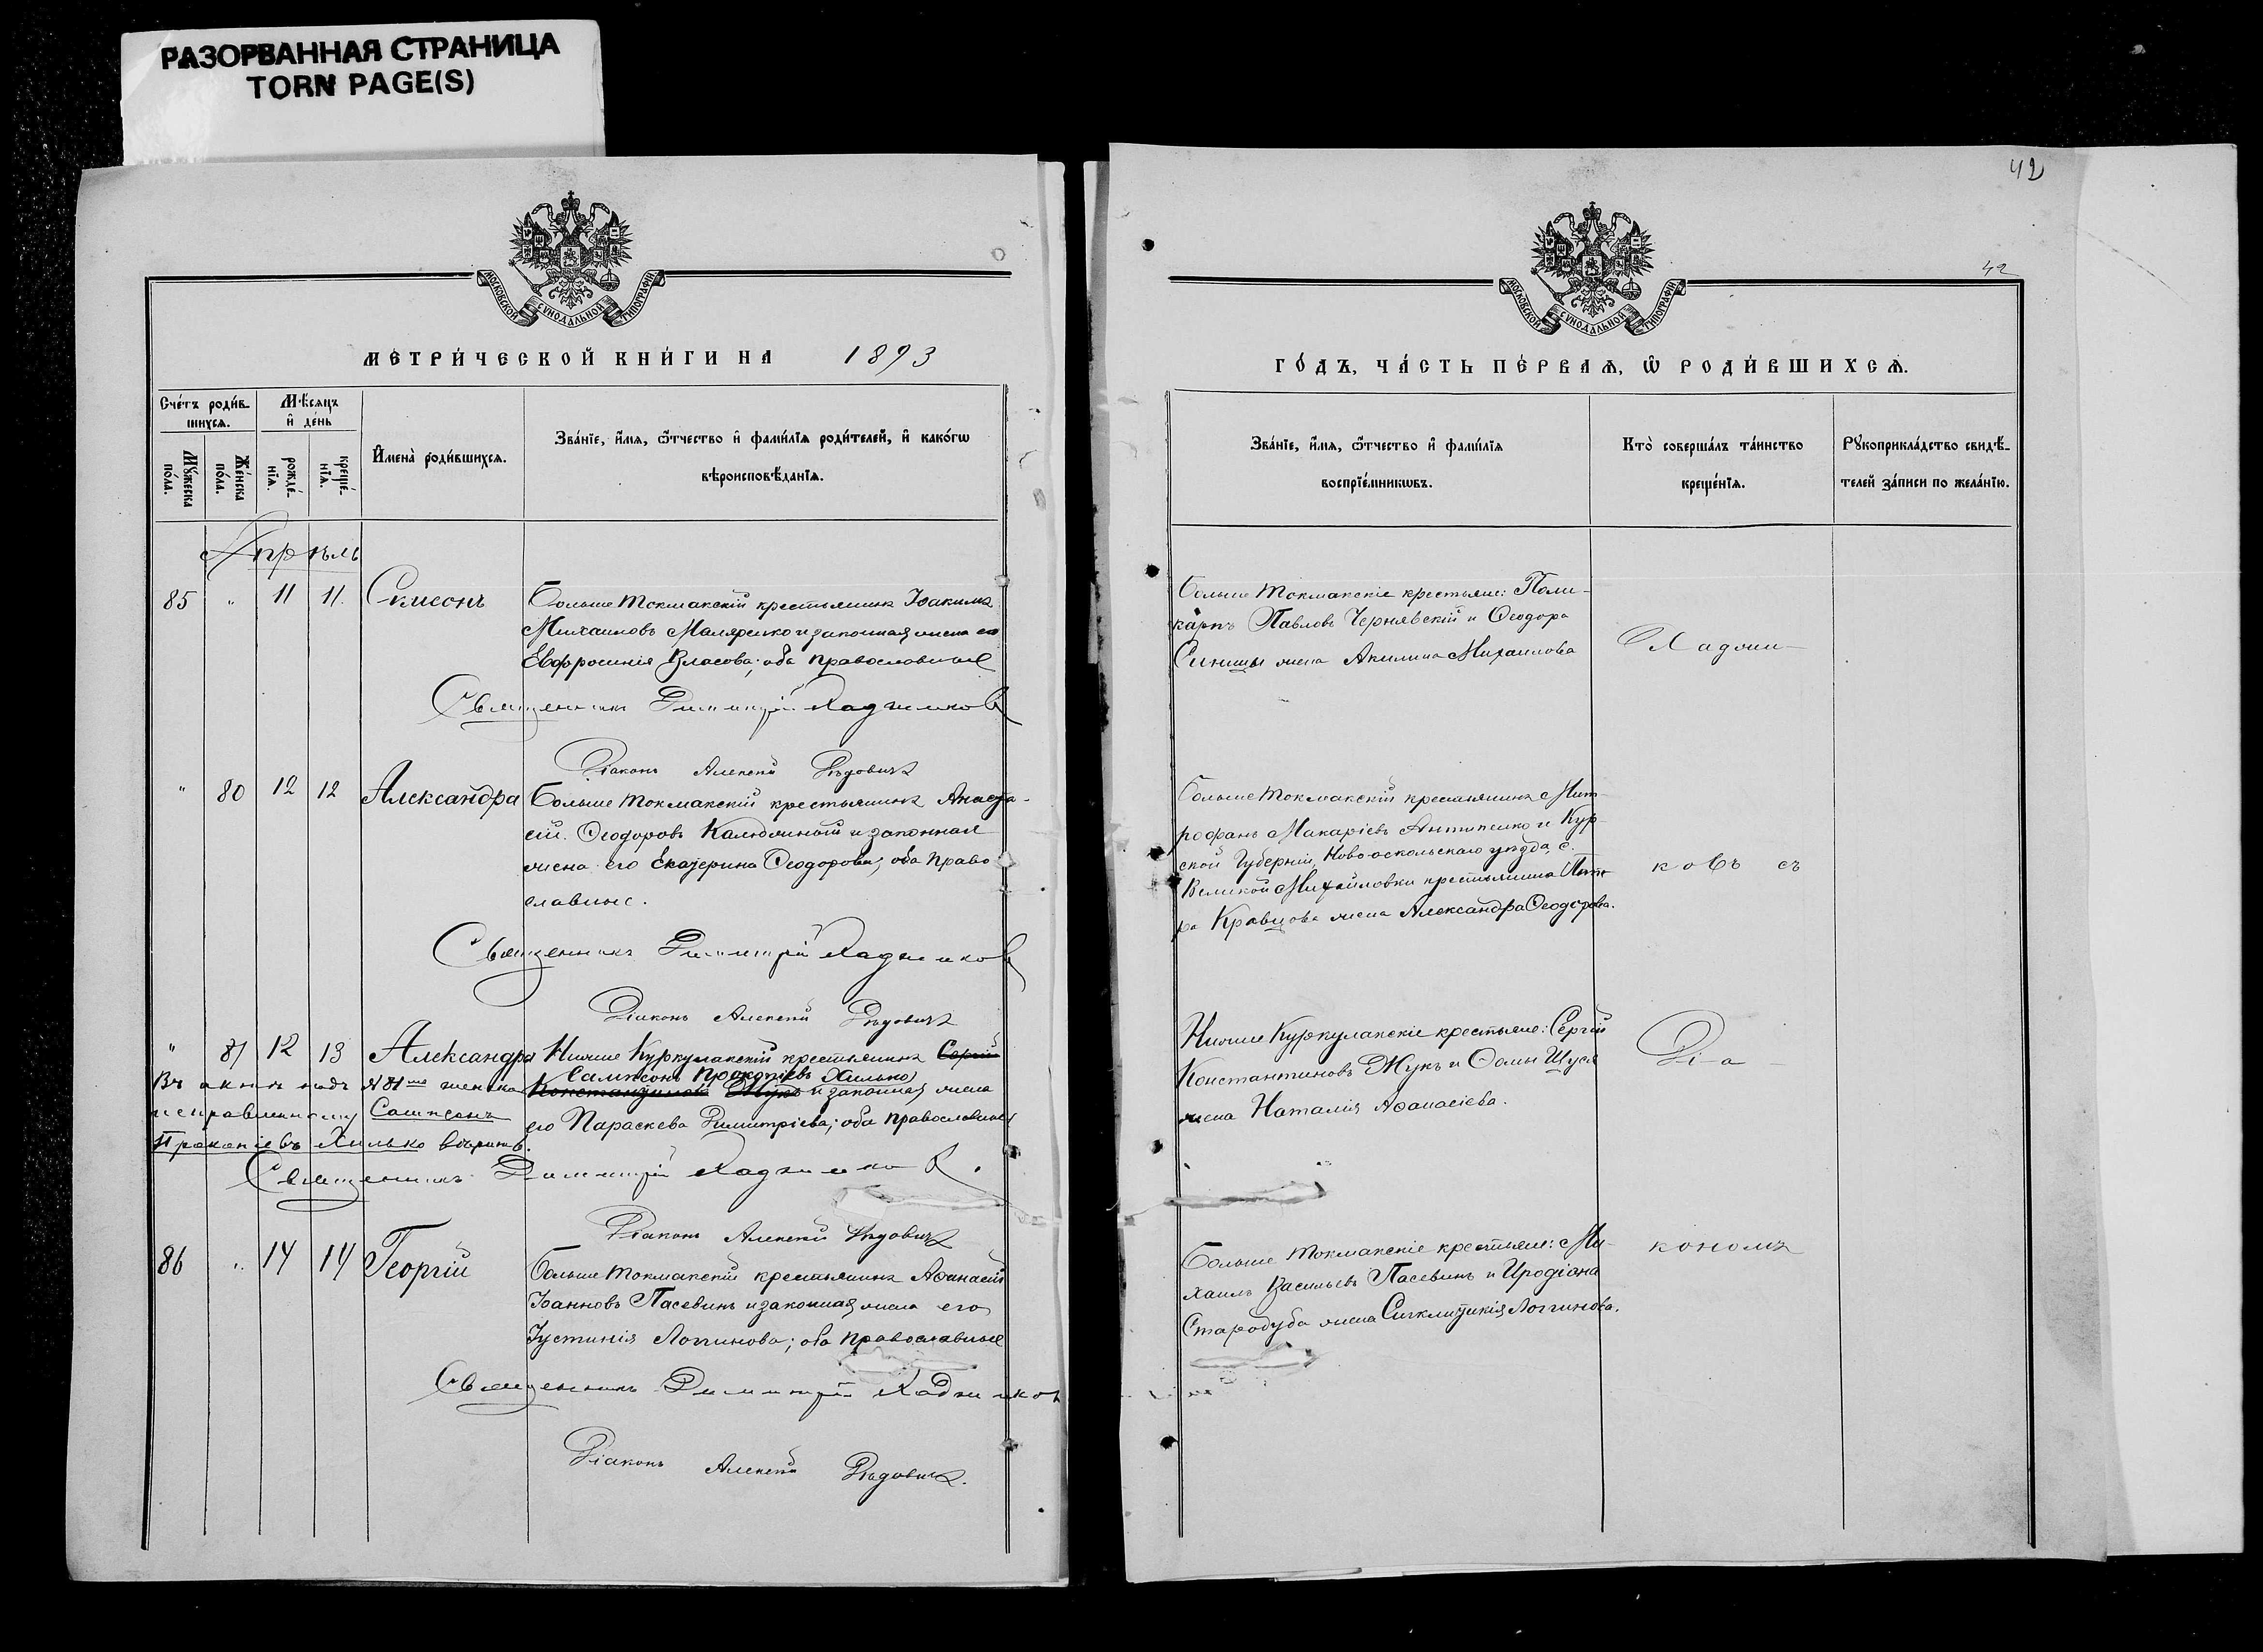 РАЗОРВАННАЯ СТРАНИЦА
TORN PAGE(S)
МОСКОВСКОЙ СѴНОДАЛЬНОЙ ТИПОГРАФІИ
МЕТРИ́ЧЕСКОЙ КНИ́ГИ НА 1893
Сче́тъ роди́в-
шихсѧ.
Мѣ́сѧцъ
и҆ де́нь
Мꙋ́жеска по́ла.
Же́нска по́ла.
рожде́-
нїѧ.
креще́-
нїѧ.
И҆мена̀ роди́вшихсѧ.
Зва́нїе, и҆́мѧ, ѻ҆́тчество и҆ фами́лїѧ роди́телей, и҆ како́гѡ
вѣроисповѣ́данїѧ.
Апрѣль
85 " 11 11. Симеонъ
Больше Токмакскій крестьянинъ Іоакимъ
Михаиловъ Маляренко и законная жена его
Евфросинія Власова; оба православные
Священникъ Димитрій Хаджиковъ
Діаконъ Алексій Дѣдовичъ
" 80 12 12 Александра
Больше Токмакскій крестьянинъ Анаста-
сій Ѳеодоровъ и законная
жена его Екатерина Ѳеодорова; оба право
славные.
Священникъ Димитрій Хаджиковъ
Діаконъ Алексій Дѣдовичъ
" 81 12 13 Александра
Нижне Куркулакскій крестьянинъ Сергій
Сампсонъ Прокопіевъ Хилько
Константиновъ Жукъ и законная жена
его Параскева Димитріева; оба православные
Въ актѣ подъ № 81 женска
исправленному Сампсонъ
Прокопіевъ Хилько вѣрить.
Священникъ Димитрій Хаджиковъ.
Діаконъ Алексій Дѣдовичъ
86 " 14 14 Георгій
Больше Токмакскій крестьянинъ Аѳанасій
Іоанновъ Пасевинъ и законная жена его
Іустинія Логгинова; оба православные
Священникъ Димитрій Хаджиковъ
Діаконъ Алексій Дѣдовичъ.
42
42
МОСКОВСКОЙ СѴНОДАЛЬНОЙ ТИПОГРАФІИ
ГО́ДЪ, ЧА́СТЬ ПЕ́РВАѦ, Ѡ҆ РОДИ́ВШИХСѦ.
Зва́нїе, и҆́мѧ, ѻ҆́тчество и҆ фами́лїѧ
воспрїе́мникѡвъ.
Кто̀ соверша́лъ та́инство
креще́нїѧ.
Рꙋкоприкла́дство свидѣ́-
телей за́писи по жела́нїю.
Больше Токмакскіе крестьяне: Поли-
карпъ Павловъ Чернявскій и Ѳеодора
Синицы жена Акилина Михаилова
Хаджи-
Больше Токмакскій крестьянинъ Мит-
рофанъ Макаріевъ Антипенко и Кур-
ской Губерніи, Новооскольскаго уѣзда, с.
Великой Михайловки крестьянина Пет-
ра Кравцова жена Александра Ѳеодорова.
ковъ съ
Нижне Куркулакскіе крестьяне: Сергій
Константиновъ Жукъ и Ѳомы Щуся
жена Наталія Аѳанасіева.
Діа-
Больше Токмакскіе крестьяне: Ми-
хаилъ Васильевъ Пасевинъ и Иродіона
Стародуба жена Сигклитикія Логгинова.
кономъ